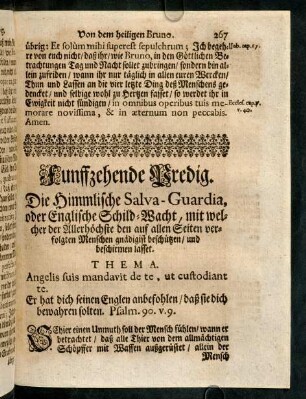 Von dem heiligen Bruno. 267
übrig: Et solùm mihi superest sepulchrum; Ich begeh-
re von euch nicht/ daß ihr/ wie Bruno, in den Göttlichen Be-
trachtungen Tag und Nacht sollet zubringen/ sondern bin al-
lein zufriden/ wann ihr nur täglich in allen euren Wercken/
Thun und Lassen an die vier letzte Ding deß Menschens ge-
dencket/ und selbige wohl zu Hertzen fasset/ so werdet ihr in
Ewigkeit nicht sündigen/ in omnibus operibus tuis me-
morare novissima, & in æternum non peccabis.
Amen.
Funffzehende Predig.
Die Himmlische Salva-Guardia,
oder Englische Schild-Wacht, mit wel-
cher der Allerhöchste den auf allen Seiten ver-
folgten Menschen gnädigist beschützen/ und
beschirmen lasset.
THEMA.
Angelis suis mandavit de te, ut custodiant
te.
Er hat dich seinen Englen anbefohlen/ daß sie dich
bewahren solten. Psalm. 90. v. 9.
SChier einen Unmuth soll der Mensch fühlen/ wann er
betrachtet/ daß alle Thier von dem allmächtigen
Schöpffer mit Waffen außgerüstet/ allein der
Mensch